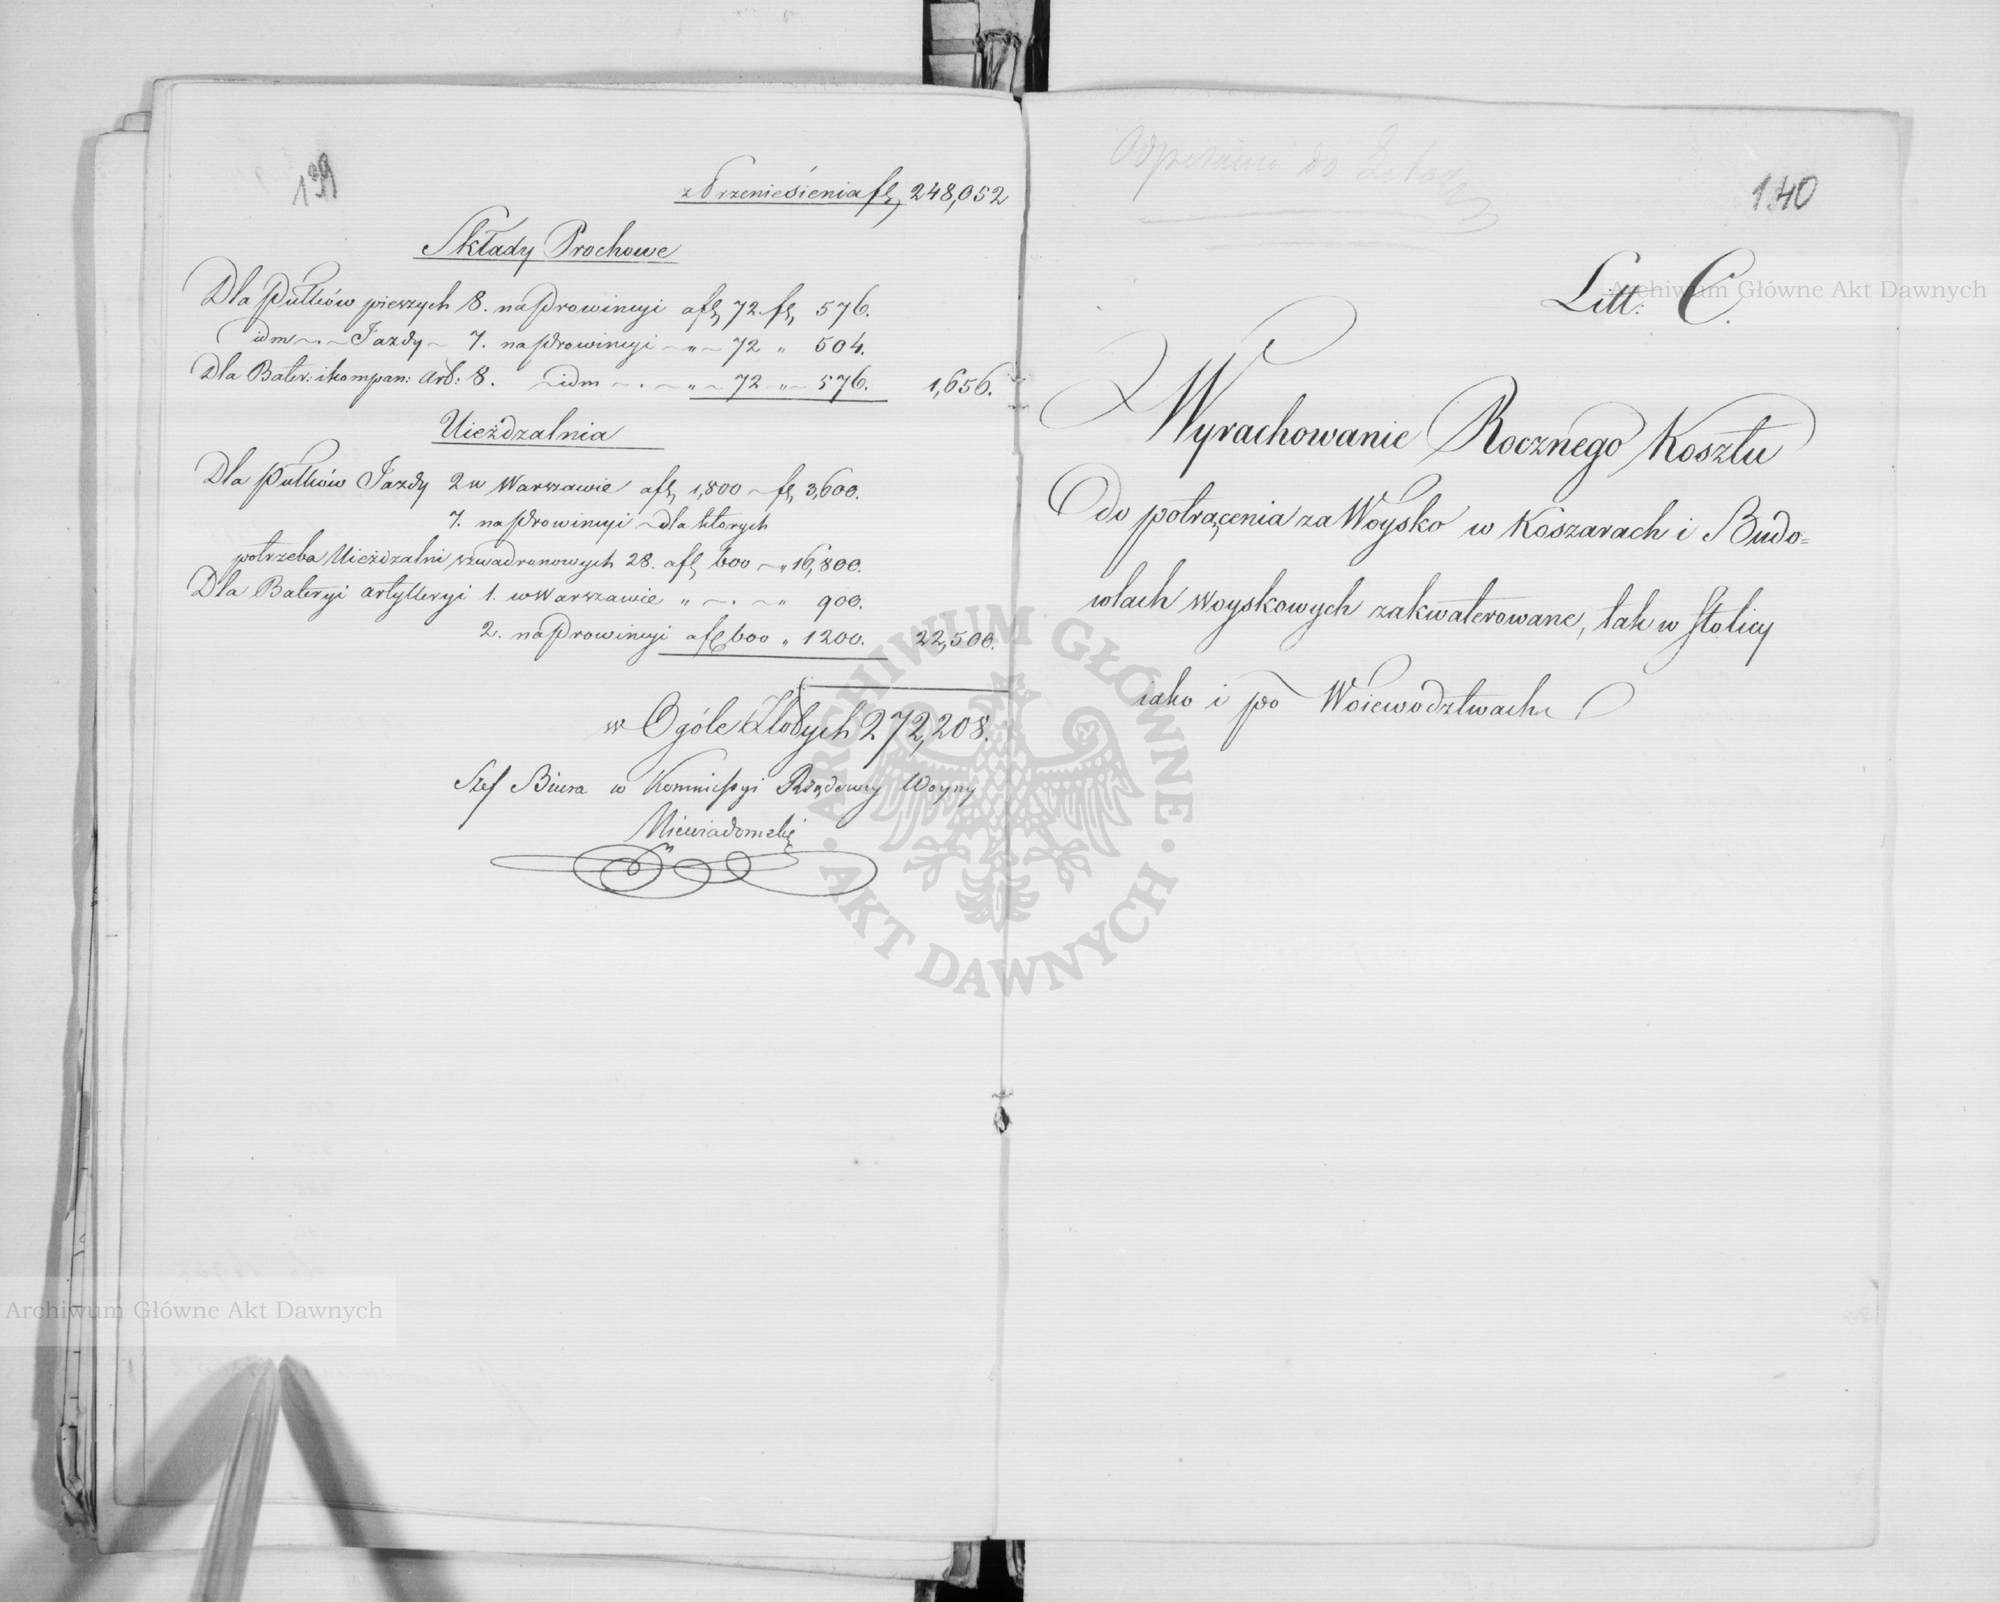 139
z Przeniesienia fl 248,052
Składy Prochowe
Dla Pułków pieszych 8. na Prowincyi a fl 72. fl 576.
idm ~ . ~ Jazdy ~ 7. na Prowincyi ~ „ ~ 72 „ 504.
Dla Bater: i kompan: Art: 8. ~ idm ~ . ~ „ ~ 72 ~ „ ~ 576. 1,656.
Uieżdzalnia
Dla Pułków Jazdy 2 w Warszawie a fl 1,800 ~ fl 3,600.
7. na Prowincyi ~ dla których
potrzeba Uieżdzalni szwadronowych 28. a fl 600 ~ „ 16,800.
Dla Bateryi artylleryi 1. w Warszawie „ ~ . ~ „ 900.
2. na Prowincyi a fl 600 „ 1200. 22,500.
w Ogóle Złotych 272,208.
Szef Biura w Kommissyi Rządowey Woyny
Niewiadomski
140
Odpisano do
Litt: C.
Wyrachowanie Rocznego Kosztu
do potrącenia za Woysko w Koszarach i Budo=
wlach woyskowych zakwaterowane, tak w Stolicy
iako i po Woiewodztwach
Archiwum Główne Akt Dawnych
ARCHIWUM GŁÓWNE · AKT DAWNYCH ·
Archiwum Główne Akt Dawnych